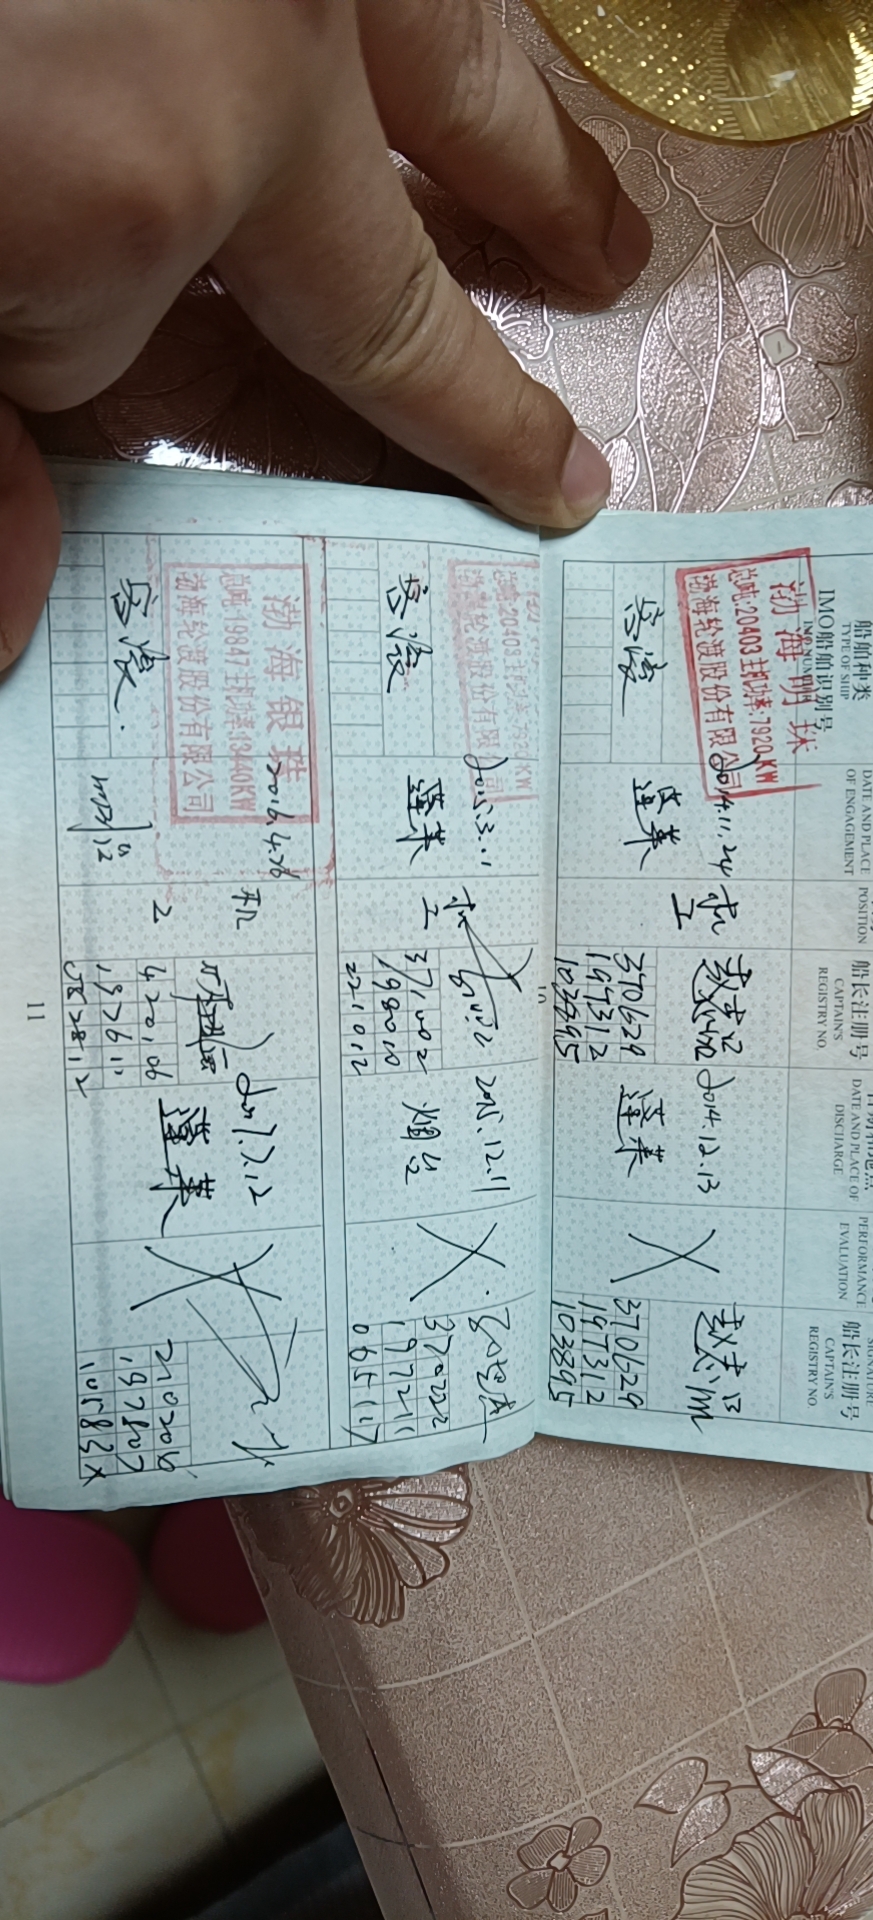 船舶种类
TYPE OF SHIP
IMO船舶识别号
IMO NUMBER
DATE AND PLACE
OF ENGAGEMENT
POSITION
船长注册号
CAPTAIN'S
REGISTRY NO.
DATE AND PLACE OF
DISCHARGE
PERFORMANCE
EVALUATION
SIGNATURE
船长注册号
CAPTAIN'S
REGISTRY NO.
渤海明珠
总吨:20403主机功率:7920KW
渤海轮渡股份有限公司
客滚
2014.11.24
蓬莱
机
工
370629
197312
103895
2014.12.13
蓬莱
370629
197312
103895
10
总吨:20403主机功率:7920KW
渤海轮渡股份有限公司
客滚
2015.3.11
蓬莱
机
工
371002
198010
221012
2015.12.11
烟台
370222
197211
065117
渤海银珠
总吨:19847主机功率:13440KW
渤海轮渡股份有限公司
客滚
2016.4.26
机
工
420106
197611
2017.7.12
蓬莱
210204
197807
10583X
11